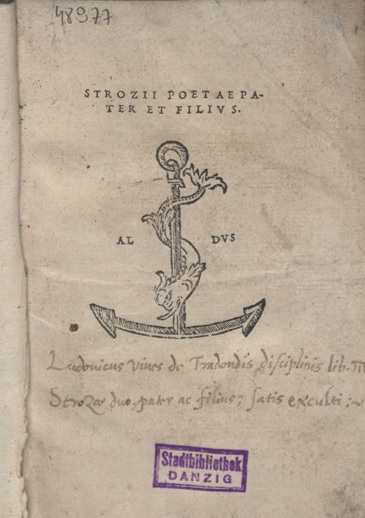 48977
STROZII POETAE PA-
TER ET FILIVS.
AL DVS
Ludovicus Vives de Tradendis disciplinis lib. III
Strozae duo, pater ac filius; satis exculti:~
Stadtbibliothek
DANZIG